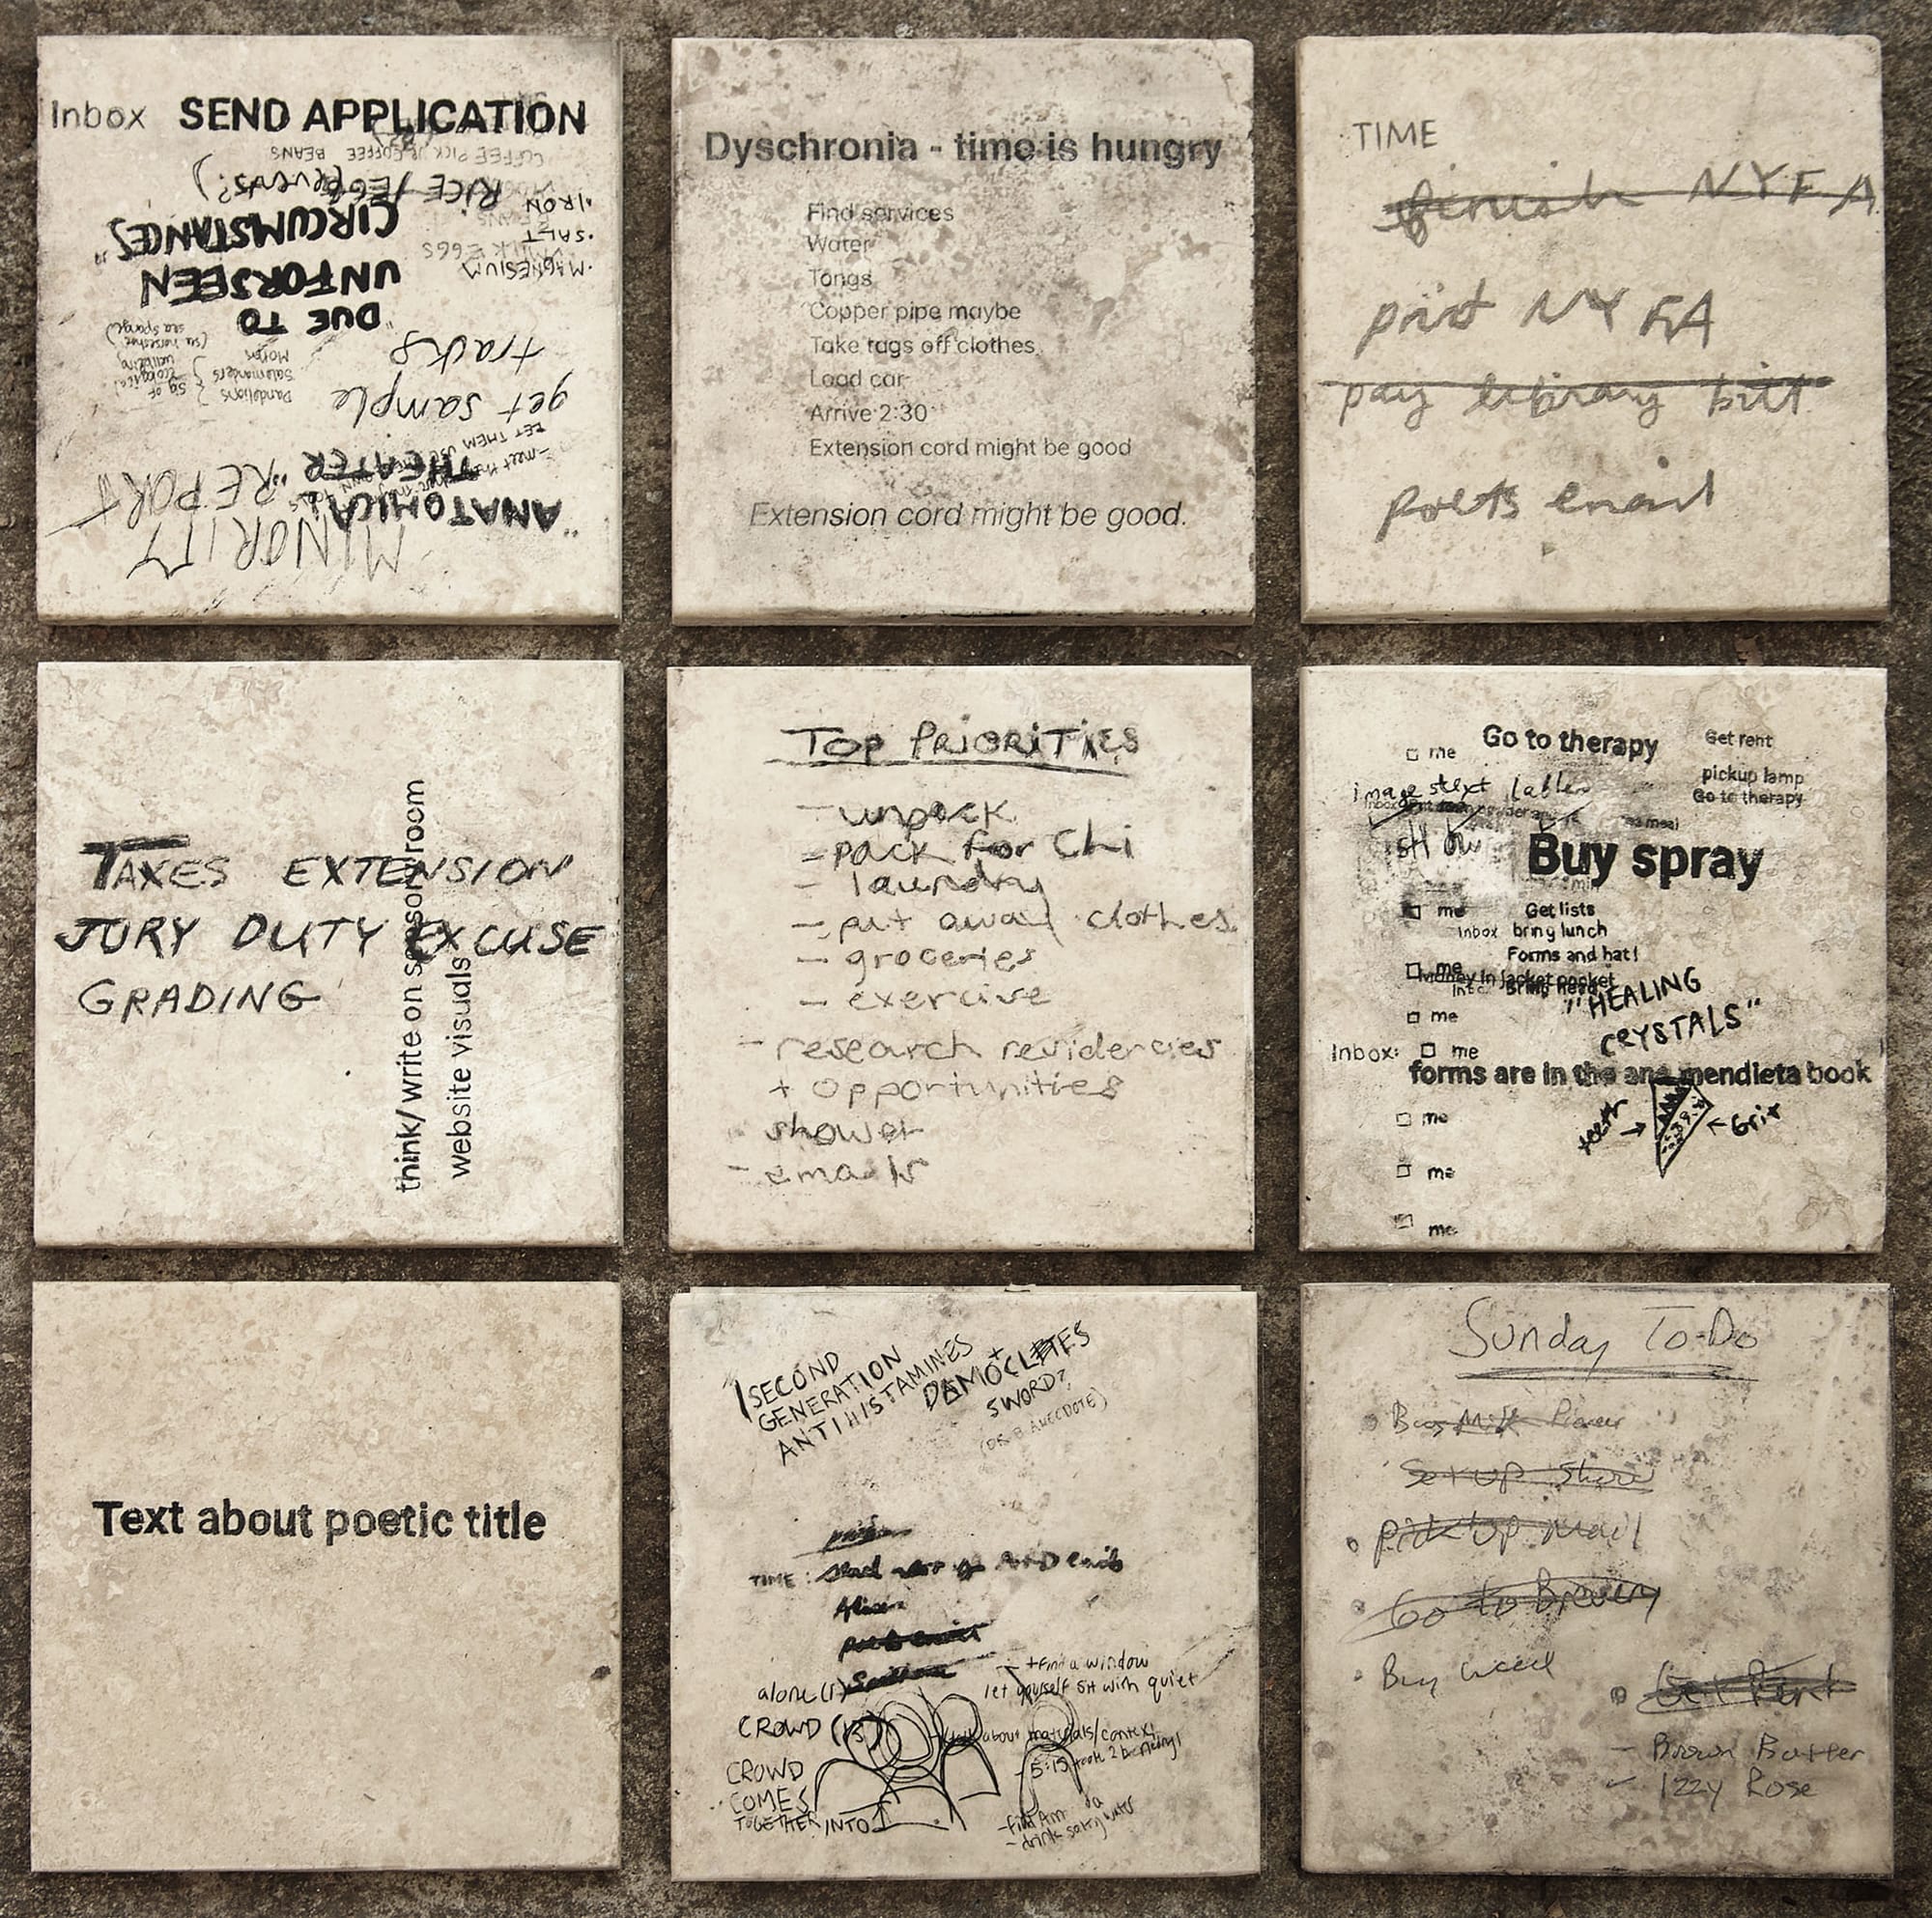 Inbox SEND APPLICATION
COFFEE PICK UP COFFEE BEANS
RICE / EGG
IRON
SALT
MAGNESIUM
EGGS
"DUE TO
UNFORSEEN
CIRCUMSTANCES"
get sample
tracks
Dandelions
Salamanders
Morels
sig of
ecological
wellbeing
"ANATOMICAL
THEATER
MINORITY
REPORT
Dyschronia - time is hungry
Find services
Water
Tongs
Copper pipe maybe
Take tags off clothes
Load car
Arrive 2:30
Extension cord might be good
Extension cord might be good.
TIME
finish NYFA
print NYFA
pay library bill
poets email
TAXES EXTENSION
JURY DUTY EXCUSE
GRADING
think/write on sensory room
website visuals
TOP PRIORITIES
- unpack
- pack for Chi
- laundry
- put away clothes
- groceries
- exercise
- research residencies
+ opportunities
- shower
- emails
me Go to therapy Get rent
pickup lamp
Go to therapy
images text
show
Buy spray
me Get lists
Inbox bring lunch
Forms and hat!
me
Money in jacket pocket
"HEALING
CRYSTALS"
me
Inbox: me
forms are in the ana mendieta book
me
teeth Grit
me
me
Text about poetic title
SECOND
GENERATION
ANTIHISTAMINES +
DAMOCLETES
SWORD?
(DR. B ANECDOTE)
TIME:
Alice
alone (1)
+ find a window
let yourself sit with quiet
CROWD (15)
about materials/context
CROWD
COMES
TOGETHER INTO 1
- drink salty water
Sunday To-Do
Buy Milk
Set up show
Pick up mail
Go to Brewery
Buy weed
Get Rent
- Brown Butter
- Izzy Rose